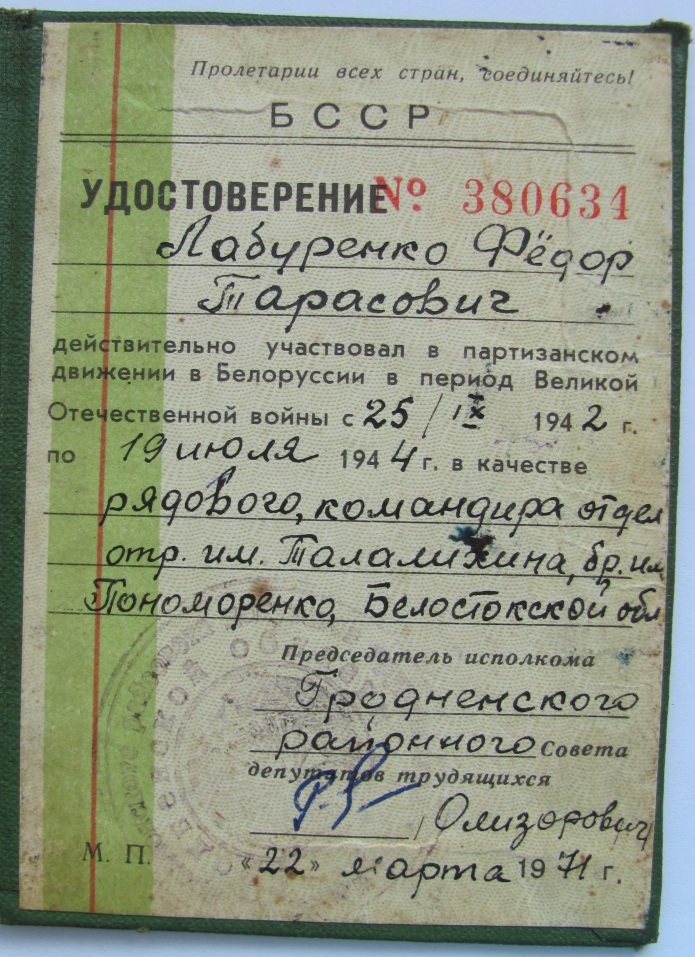 Пролетарии всех стран, соединяйтесь!
БССР
УДОСТОВЕРЕНИЕ № 380634
Лабуренко Фёдор
Тарасович
действительно участвовал в партизанском
движении в Белоруссии в период Великой
Отечественной войны с 25/IX 1942 г.
по 19 июля 1944 г. в качестве
рядового, командира отдел
отр. им. Талалихина, бр. им.
Пономоренко, Белостокской обл
Председатель исполкома
Гродненского
районного Совета
депутатов трудящихся
Олизорович
М. П. «22» марта 1971 г.